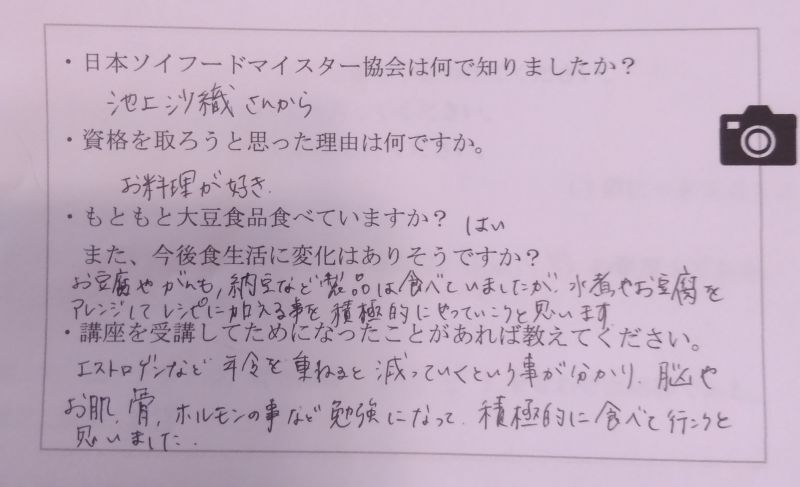 ・日本ソイフードマイスター協会は何で知りましたか?
池上沙織さんから
・資格を取ろうと思った理由は何ですか。
お料理が好き.
・もともと大豆食品食べていますか? はい
また、今後食生活に変化はありそうですか?
お豆腐やがんも,納豆など製品は食べていましたが、水煮やお豆腐を
アレンジしてレシピに加える事を積極的にやっていこうと思います
・講座を受講してためになったことがあれば教えてください。
エストロゲンなど年令を重ねると減っていくという事が分かり、脳や
お肌,骨,ホルモンの事など勉強になって、積極的に食べて行こうと
思いました.